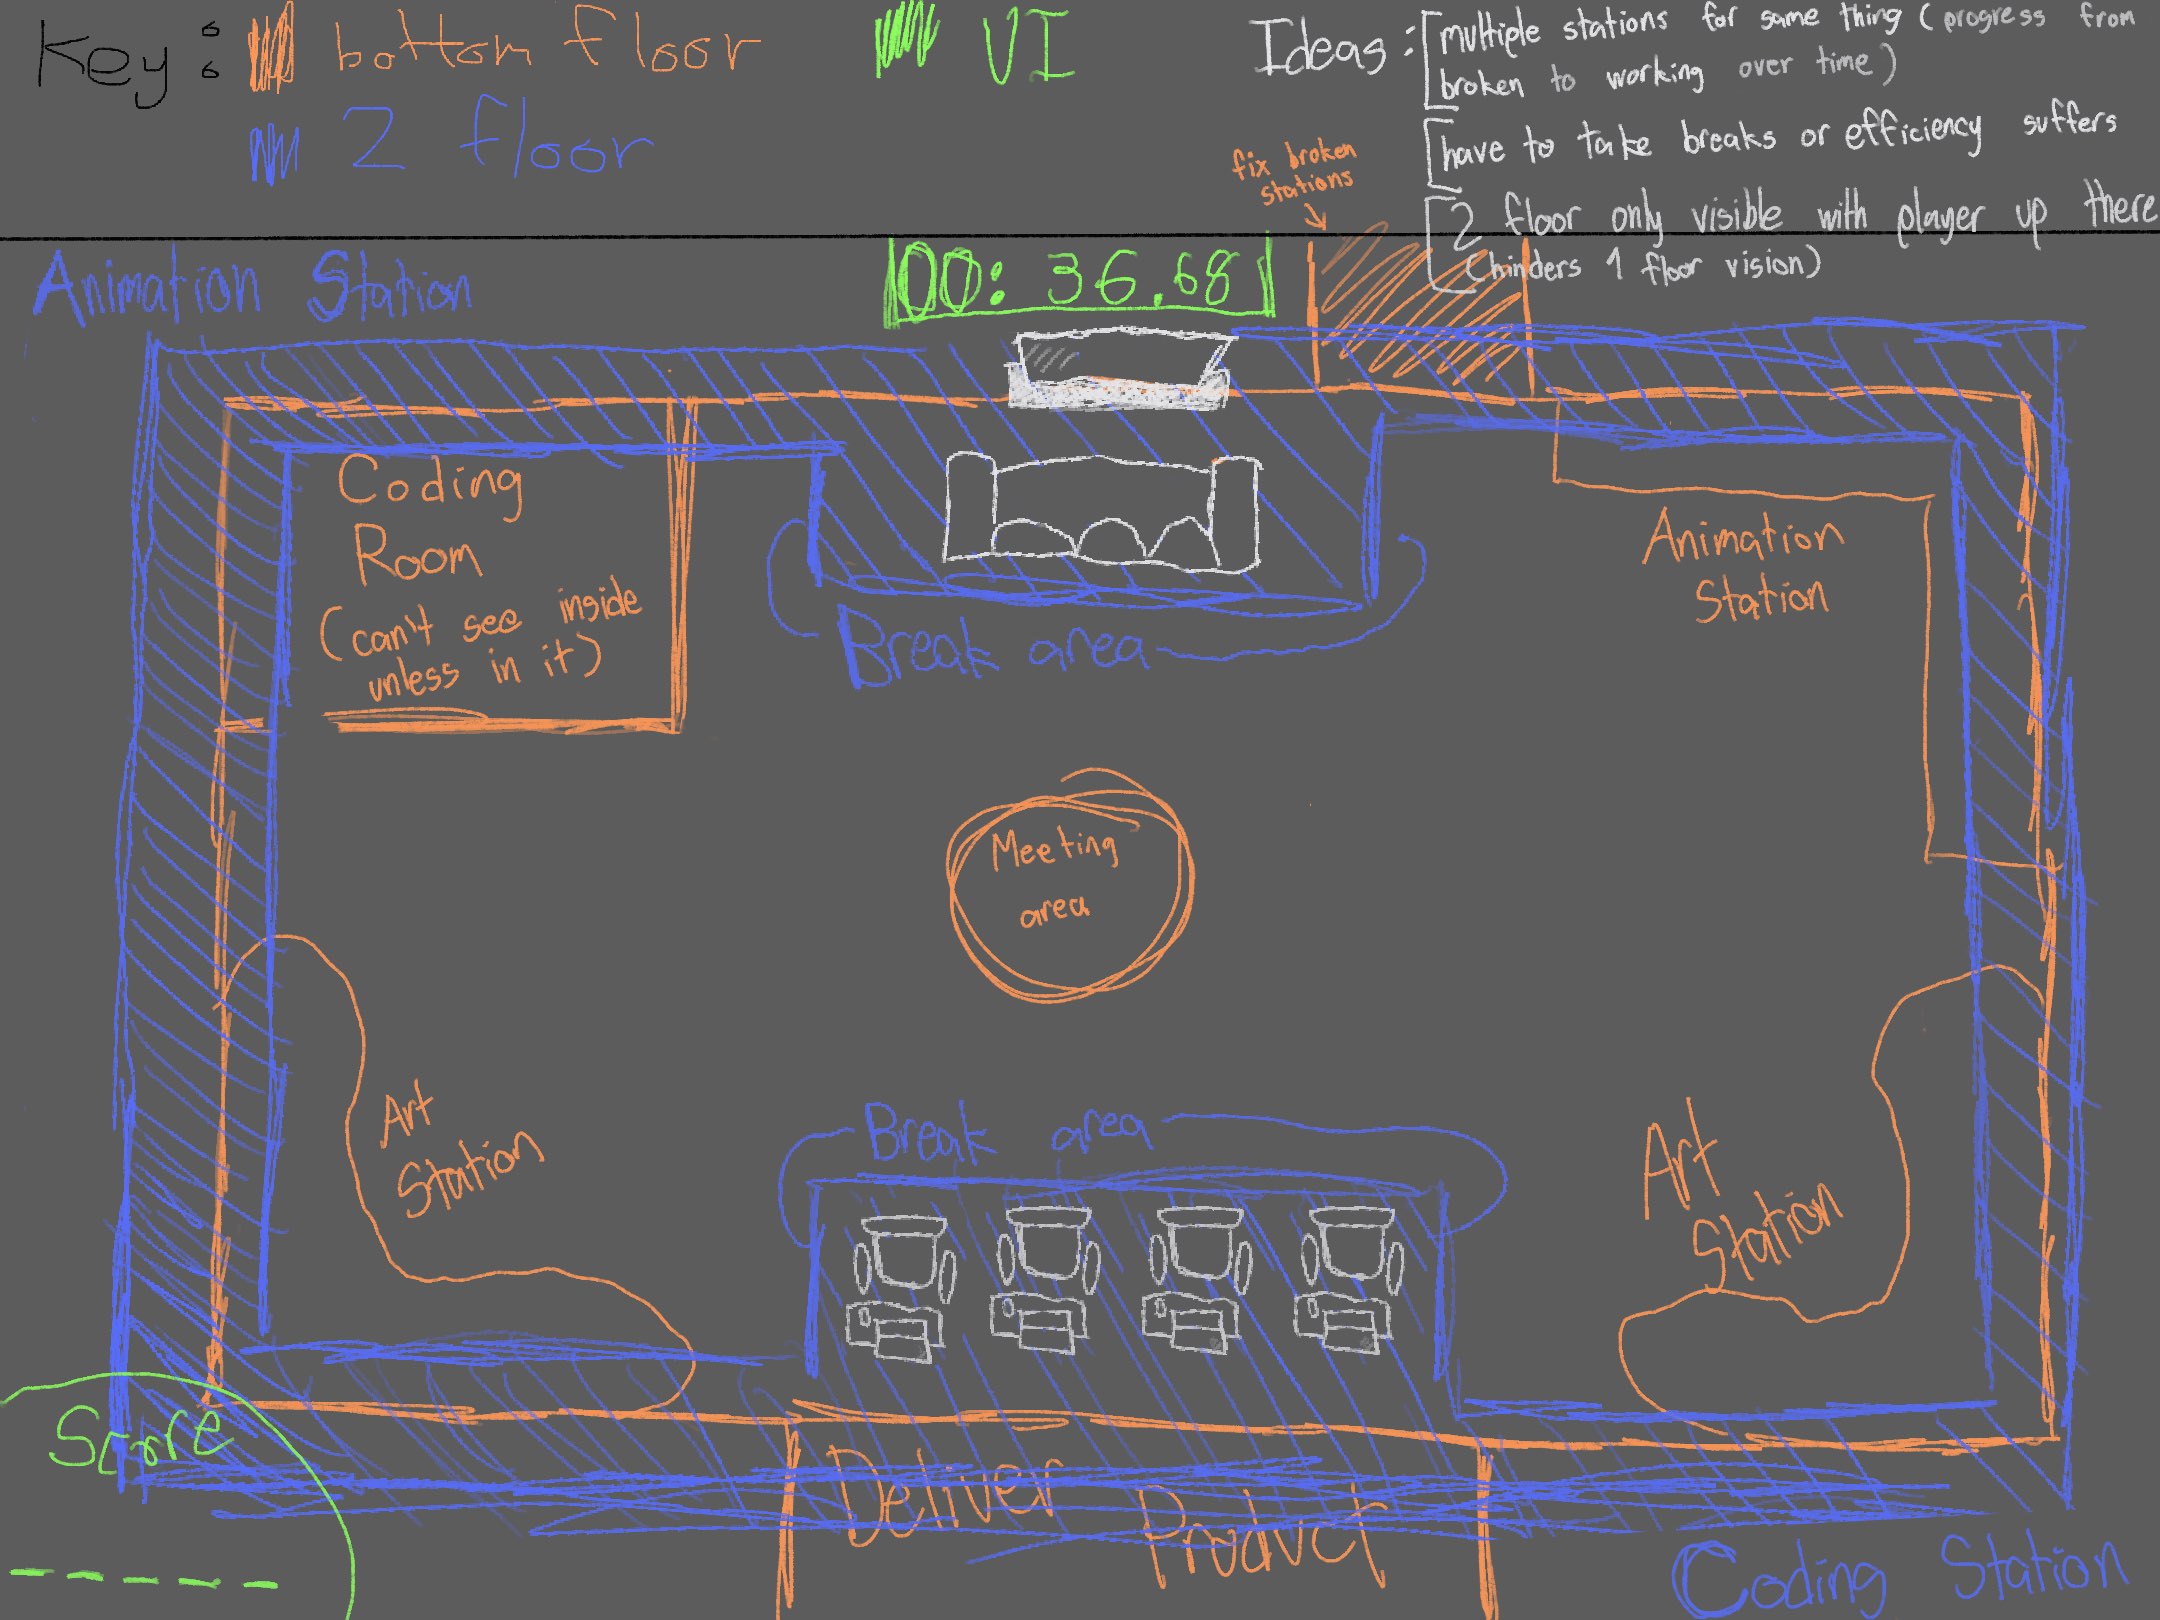 Key:
bottom floor
2 floor
UI
Ideas:
multiple stations for same thing (progress from
broken to working over time)
have to take breaks or efficiency suffers
2 floor only visible with player up there
(hinders 1 floor vision)
fix broken
stations
Animation Station
00:36.68
Coding
Room
(can't see inside
unless in it)
Break area
Animation
Station
Meeting
area
Art
Station
Break area
Art
Station
Score
Deliver
Product
Coding Station